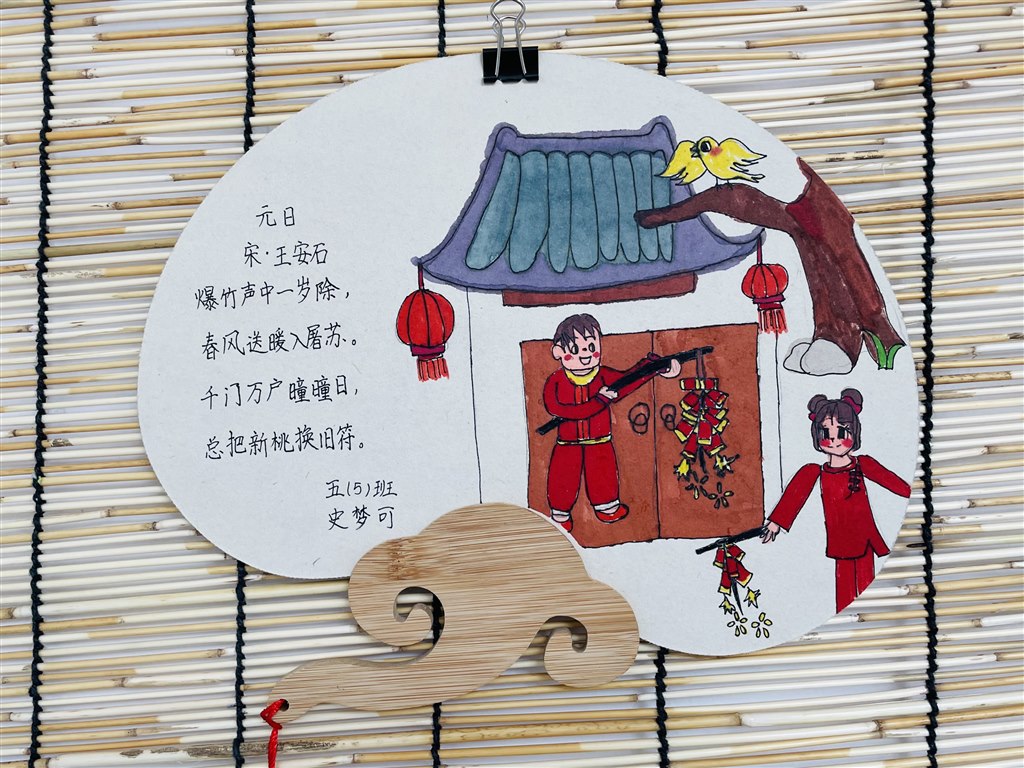 元日
宋·王安石
爆竹声中一岁除，
春风送暖入屠苏。
千门万户曈曈日，
总把新桃换旧符。
五(5)班
史梦可